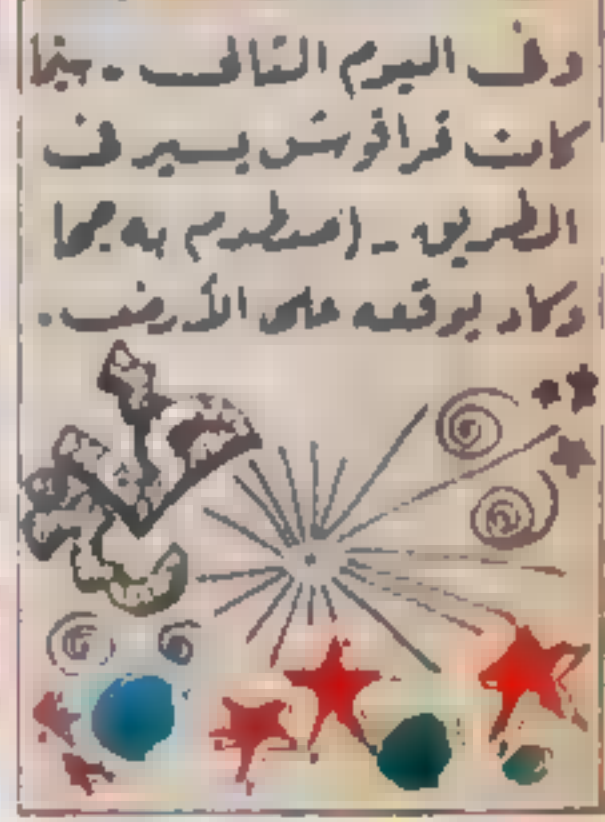 وفى اليوم التالى .. بينما
كان قراقوش يسير فى
الطريق .. اصطدم به جحا
وكاد يوقعه على الأرض .